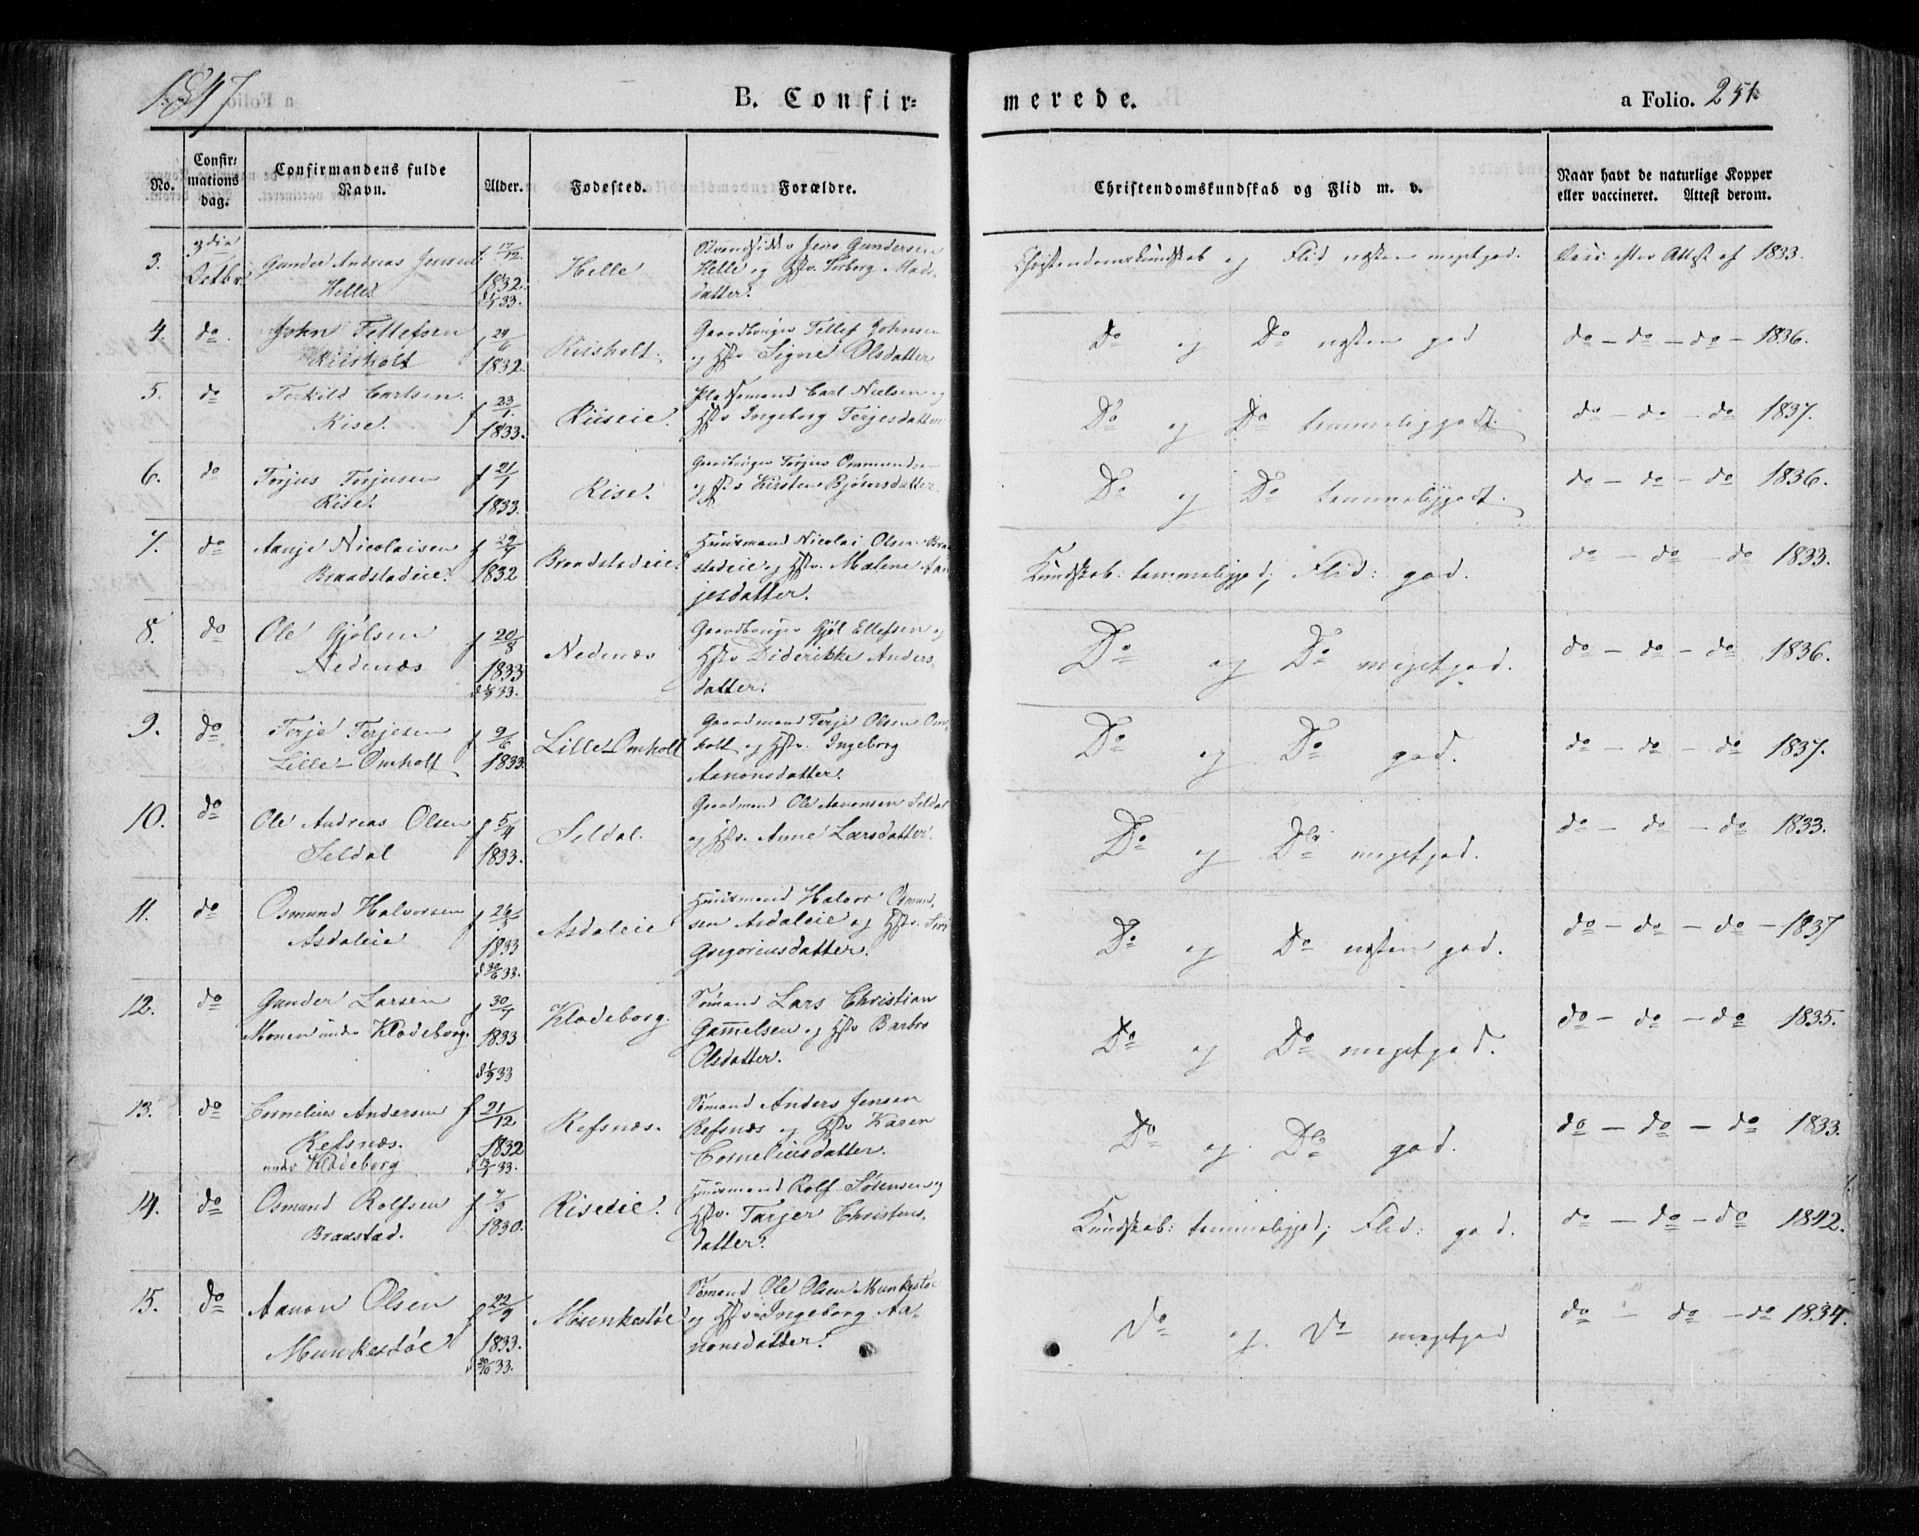 1847
B. Confir-
merede.
a Folio. 251
No.
Confir-
mations
dag.
Confirmandens fulde
Navn.
Alder.
Fødested.
Forældre.
Christendomskundskab og Flid m. v.
Naar havt de naturlige Kopper
eller vaccineret. Attest derom.
3. 3die Octbr Gunder Andreas Jensen Helle f 17/12 1832. Helle
Jens Gundersen
Helle og Hstr Inborg Mads
datter.
Christendomskundskab og Flid næsten megetgod. Vacc: efter Attest af 1833.
4. do John Tellefsen Riisholt f 29/6 1832. Riisholt.
Gaardbruger Tellef Johnsen
og Hstr Signe Olsdatter
Do og Do næsten god
do - do - do - 1836.
5. do Terkild Carlsen Rise. f 23/1 1833. Riiseie.
Pladsemand Carl Nielsen og
Hstr Ingeborg Terjesdatter
Do og Do temmeliggodt.
do - do - do 1837.
6. do Torjus Torjusen Rise. f 21/1 1833. Rise.
Gaardbruger Torjus Ommundsen
og Hstr Kirsten Bjørnsdatter.
Do og Do temmeliggodt.
do - do - do 1836.
7. do Aanje Nicolaisen Braadstadeie. f 29/9 1832 Braadstadeie.
Huusmand Nicolai Olsen Braa
stadeie og Hstr. Malene Aan
jesdatter.
Kundskab: temmeliggod; Flid: god.
do - do - do 1833.
8. do Ole Gjølsen Nedenæs f 20/8 1833 Nedenæs
Gaardbruger Gjøl Ellefsen og
Hstr Diderikke Anders
datter.
Do og Do megetgod.
do - do - do 1836.
9. do Terje Terjesen Lille-Omholt f 9/6 1833. Lille-Omholt
Gaardmand Terje Olsen Om
holt og Hstr. Ingeborg
Aanonsdatter.
Do og Do god.
do - do - do 1837.
10. do Ole Andreas Olsen Seldal f 5/4 1833. Seldal.
Gaardmand Ole Aanonsen Seldal
og Hstr. Anne Larsdatter.
Do og Do megetgod.
do - do - do 1833.
11. do Osmund Halvorsen Asdaleie f 26/5 1833 d 30/6 33. Asdaleie
Huusmand Halvor Osmund
sen Asdaleie og Hstr. Siri
Gregoriusdatter.
Do og Do næsten god.
do - do - do - 1837
12. do Gunder Larsen Monen under Klodeborg. 1833 Klodeborg.
Sømand Lars Christian
Gam̅elsen og Hstr Barbro
Olsdatter.
Do og Do megetgod.
do - do - do 1835.
13. do Cornelius Andersen Refsnæs. under Klodeborg f 21/12 1832 Refsnæs.
Sømand Anders Jensen
Refsnæs og Hstr Karen
Corneliusdatter.
Do og Do god.
do - do - do 1833.
14. do Osmund Rolfsen Braastad. 1830. Riseeie.
Huusmand Rolf Sørensen og
Hstr. Torjer Christens
datter.
Kundskab: temmeliggod; Flid: god.
do - do - do 1842.
15. do Aanon Olsen Munkestøe f 22/9 1833. d 20/10 33. Munkestøe
Sømand Ole Olsen Munkestøe
og Hstr Ingeborg Aa-
nonsdatter.
Do og Do megetgod
do - do - do 1834.